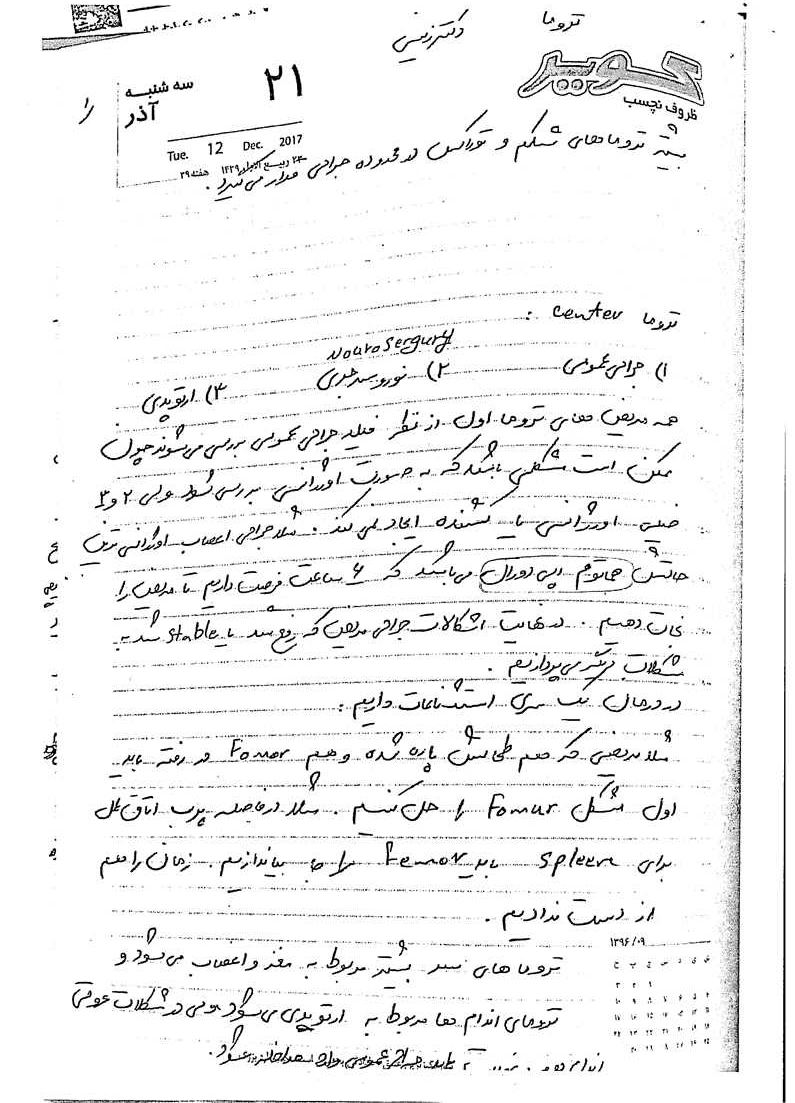 تروما
دکتر رئیسی
جویبر
ظروف نچسب
۲۱
سه شنبه
آذر
Tue. 12 Dec. 2017
۲۳ ربیع الاول ۱۴۳۹ هفته ۳۹
بیشتر تروماهای شکم و توراکس در محدوده جراحی قرار می گیرد.
تروما center :
NouroSergury
۱) جراحی عمومی ۲) نوروسرجری ۳) ارتوپدی
همه مریض های تروما اول از نظر فیلد جراحی عمومی بررسی می شوند چون
ممکن است مشکلی باشد که به صورت اورژانسی بررسی شود ولی ۲ و ۳
خیلی اورژانسی یا کشنده ایجاد نمی کند. مثلا جراحی اعصاب اورژانسی ترین
حالتش هماتوم اپی دورال می باشد که ۶ ساعت فرصت داریم تا مریض را
نجات دهیم. در نهایت اشکالات جراحی مریض که رفع شد یا stable شد به
مشکلات دیگر می پردازیم.
در درمان یک سری استثنائات داریم:
مثلا مریضی که هم طحالش پاره شده و هم Fomor در رفته باید
اول مشکل Fomur را حل کنیم. مثلا در فاصله پرپ اتاق عمل
برای Spleen باید Femor را جا بیاندازیم. زمان را هم
از دست ندادیم.
۱۳۹۶/۰۹
تروماهای سر بیشتر مربوط به مغز و اعصاب می شود و
تروماهای اندام ها مربوط به ارتوپدی می شود ولی در مشکلات عروقی
باید جراح عمومی وارد شود.